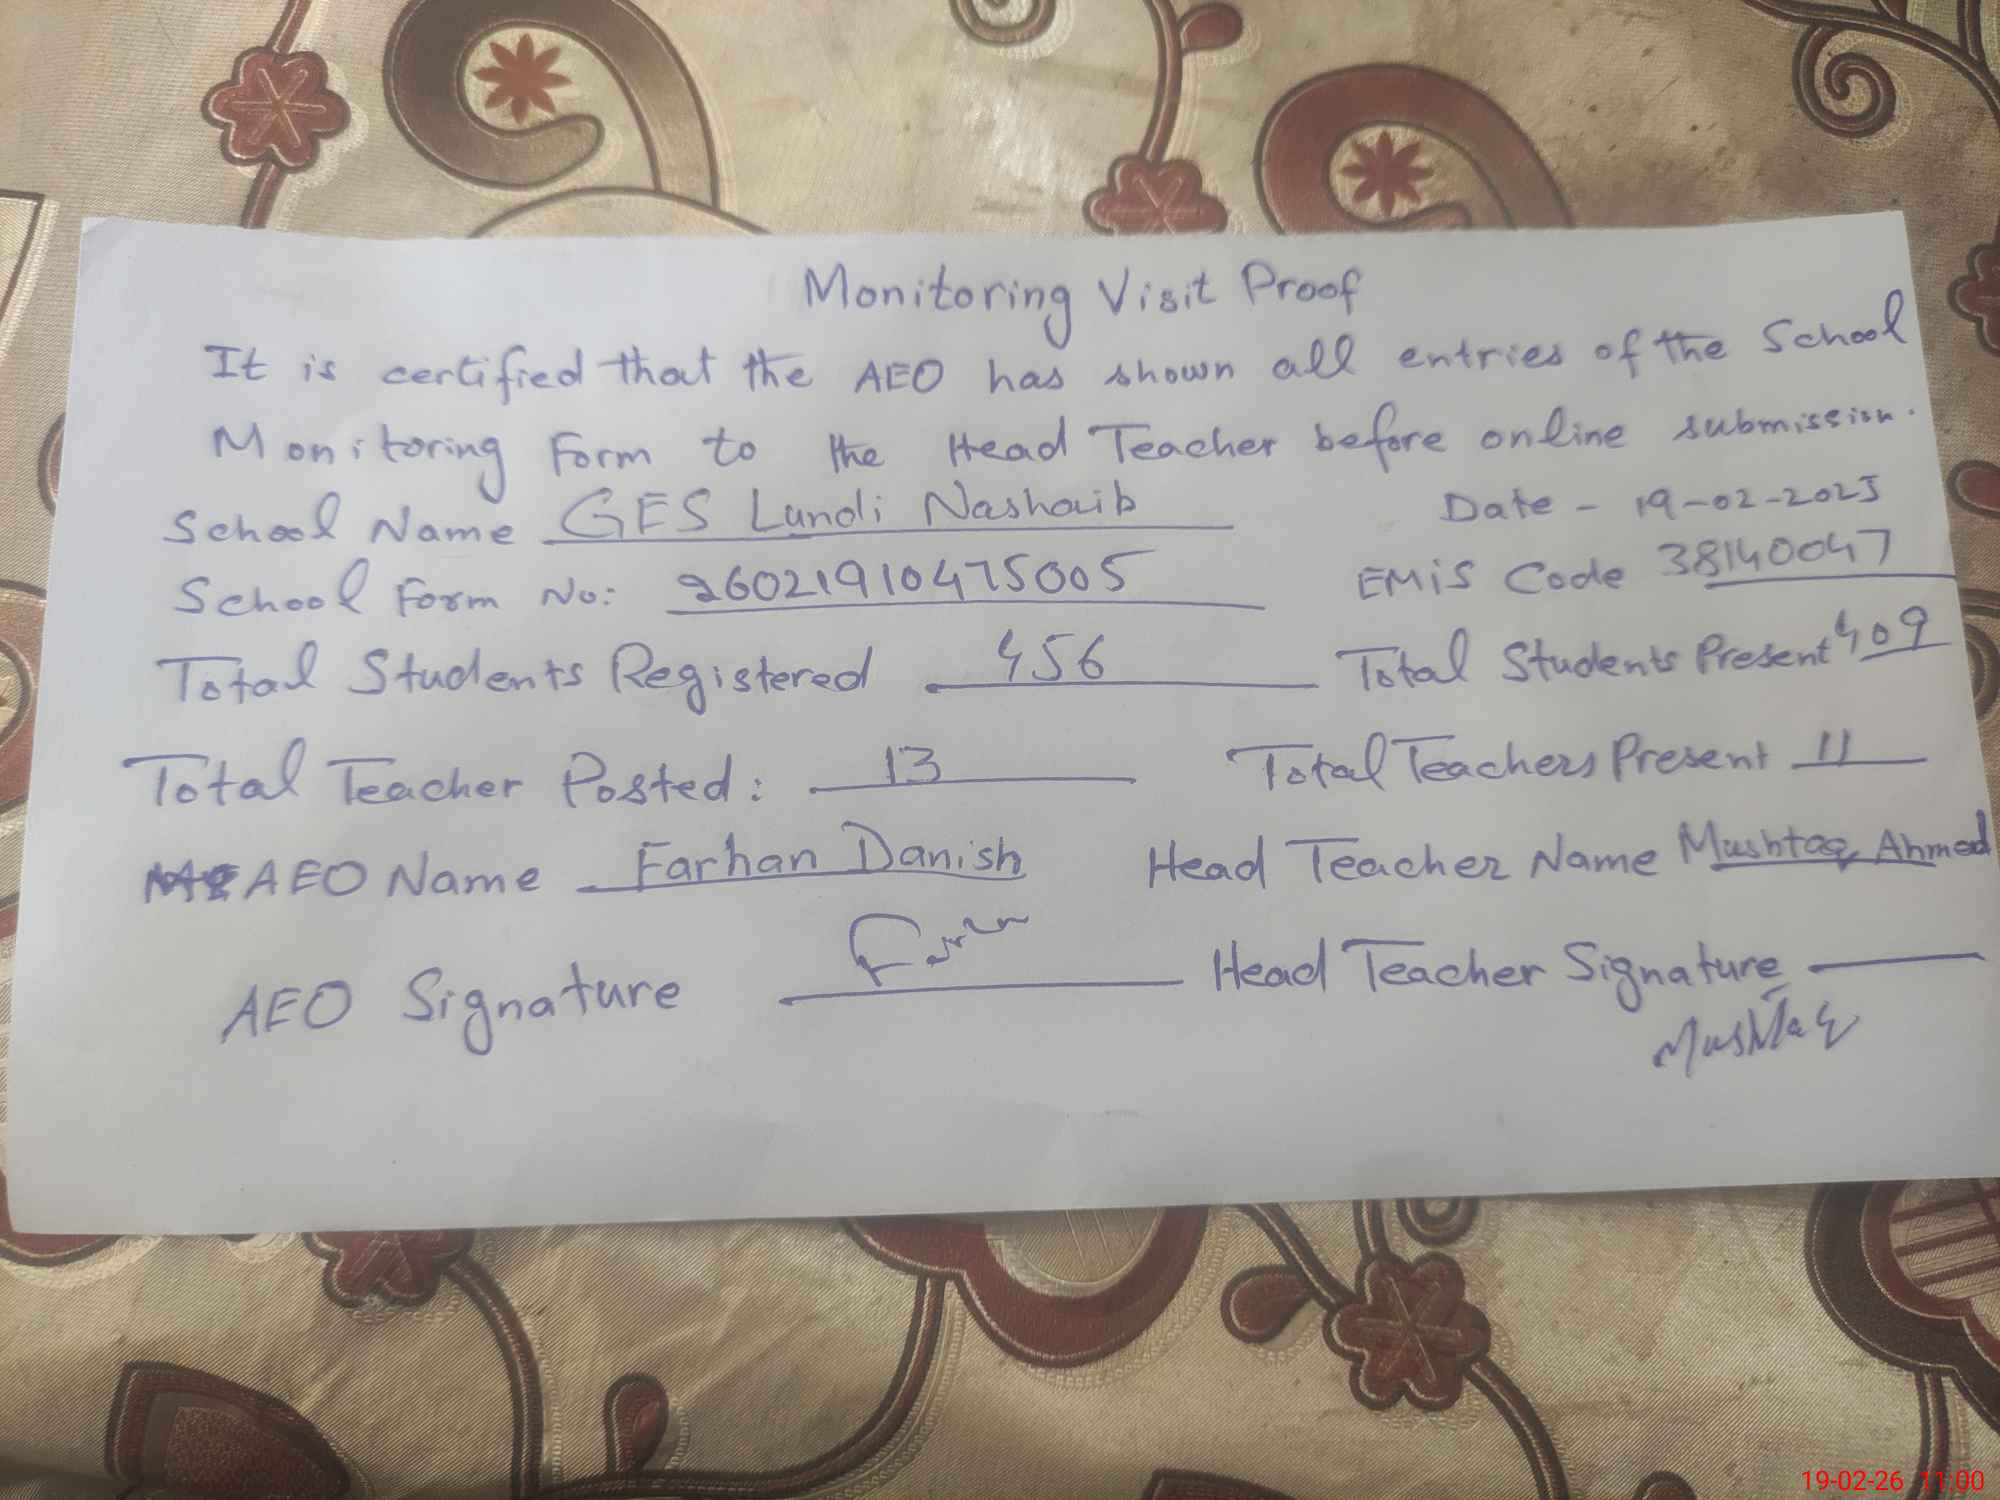 Monitoring Visit Proof
It is certified that the AEO has shown all entries of the School
Monitoring Form to the Head Teacher before online submission.
School Name GES Lundi Nashaib Date - 19-02-2025
School Form No: 26021910475005 EMiS Code 38140047
Total Students Registered 456 Total Students Present 409
Total Teacher Posted: 13 Total Teachers Present 11
AEO Name Farhan Danish Head Teacher Name Mushtaq Ahmed
AEO Signature Head Teacher Signature
Mushtaq
19-02-26 11:00